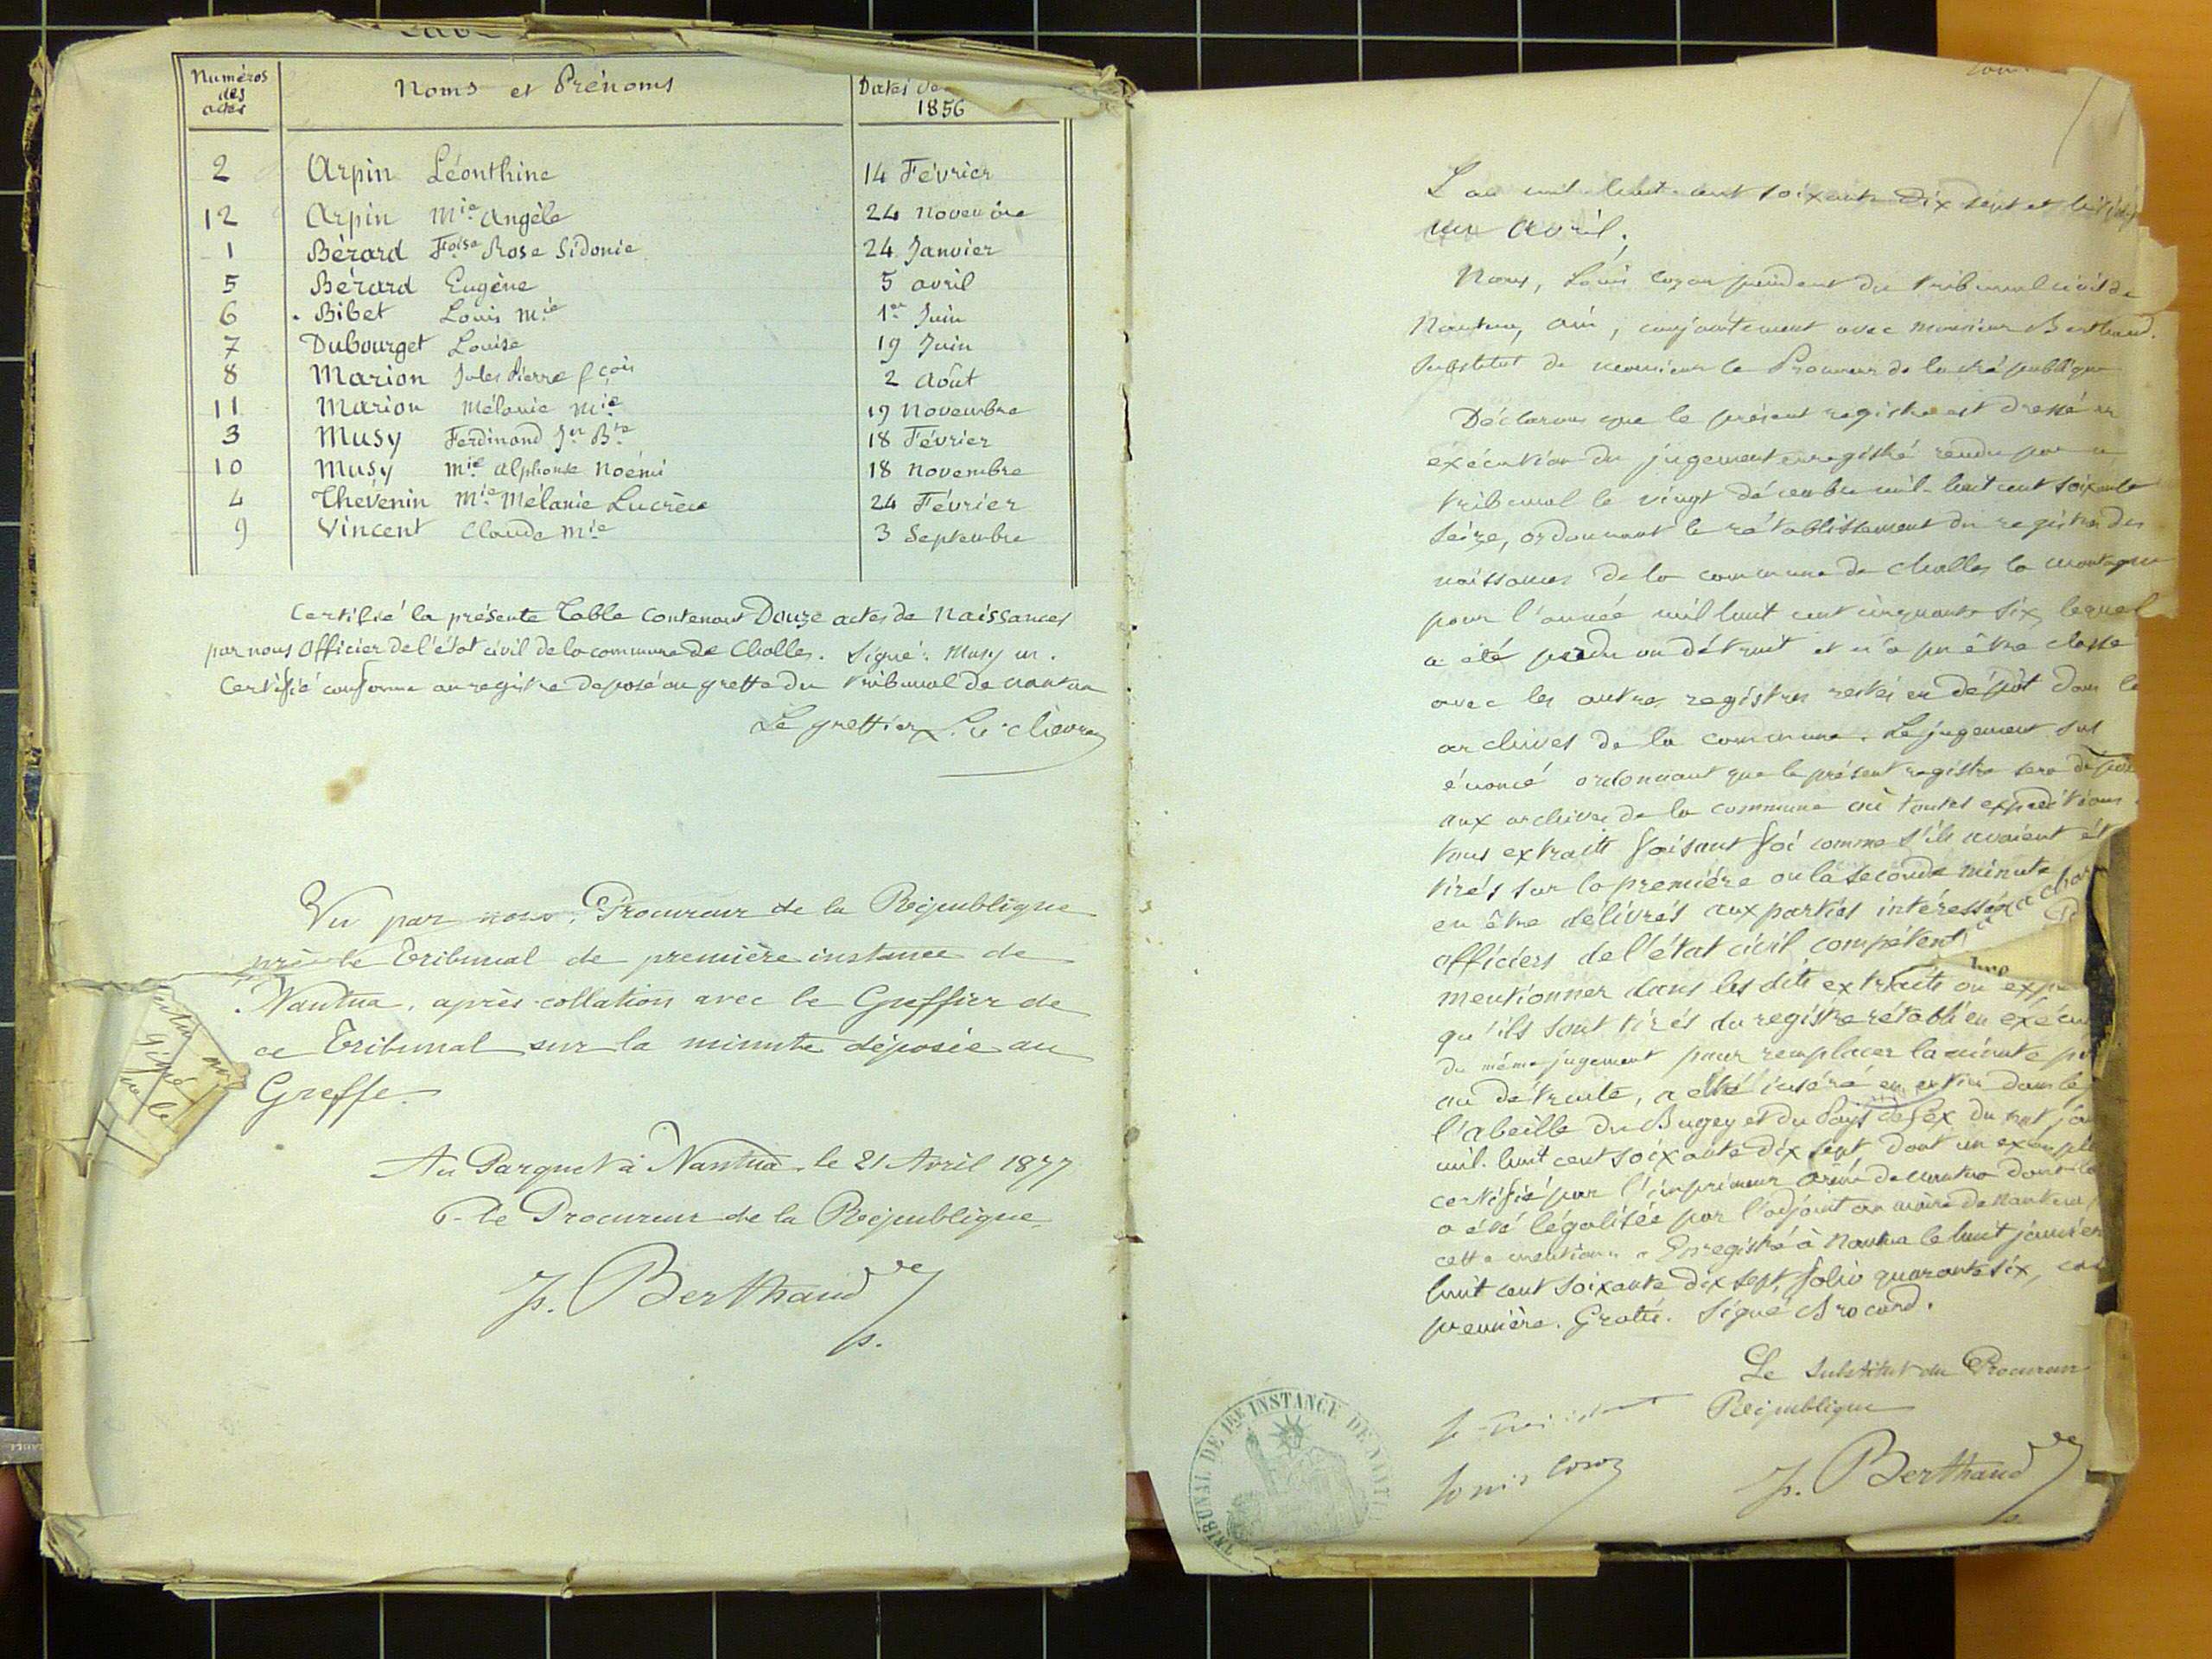 Numéros des actes
Noms et Prénoms
Dates de
1856
2 Arpin Léonthine 14 Février
12 Arpin Mie Angèle 24 Novembre
1 Bérard Foise Rose Sidonie 24 Janvier
5 Bérard Eugène 5 avril
6 Bibet Louis Mie 1er Juin
7 Dubourget Louise 19 Juin
8 Marion Jules Pierre fçois 2 Août
11 Marion Mélanie Mie 19 Novembre
3 Musy Ferdinand Jn Bte 18 Février
10 Musy Mie Alphonse Noémi 18 Novembre
4 Thévenin Mie Mélanie Lucrèce 24 Février
9 Vincent Claude Mie 3 Septembre
Certifié la présente Table contenant Douze actes de Naissances
par nous Officier de l'état civil de la commune de Challes. Signé: Musy m.
Certifié conforme au registre déposé au greffe du Tribunal de Nantua
Le greffier
Vu par nous, Procureur de la République
près le Tribunal de première instance de
Nantua, après collation avec le Greffier de
ce Tribunal sur la minute déposée au
Greffe.
Au Parquet à Nantua, le 21 Avril 1877
P. le Procureur de la République
J. Berthaud
s.
L'an mil huit cent soixante dix sept et le
un avril;
Nous, Louis président du tribunal civil de
Nantua, conjointement avec monsieur Berthaud.
substitut de monsieur le Procureur de la république
Déclarons que le présent registre est dressé en
exécution du jugement enregistré rendu par
tribunal le vingt décembre mil huit cent soixante
seize, ordonnant le rétablissement du registre des
naissances de la commune de Challes la montagne
pour l'année mil huit cent cinquante six, lequel
a été perdu ou détruit et n'a pu être classé
avec les autres registres restés en dépôt dans le
archives de la commune. Le jugement sus
énoncé ordonnant que le présent registre sera déposé
aux archives de la commune où toutes expéditions
tous extraits faisant foi comme s'ils avaient ét
tirés sur la première ou la seconde minute
en être délivrés aux parties intéressées
officiers de l'état civil compétent
mentionner dans les dits extraits ou expé
qu'ils sont tirés du registre rétabli en exécu
du même jugement pour remplacer la minute pe
ou détruite, a été inséré en entier dans le
l'abeille du Bugey et du Pays de Gex du
mil huit cent soixante dix sept, dont un exemple
certifié par l'imprimeur Arène de Nantua dont la
a été légalisée par l'adjoint au maire de Nantua,
cette mention: " Enregistré à Nantua le huit janvier
huit cent soixante dix sept, folio quarante six, cas
première. Gratis. Signé Brocard.
Le Substitut du Procureur
République
Le Président
Louis
J. Berthaud
s.
TRIBUNAL DE 1RE INSTANCE DE NANTUA